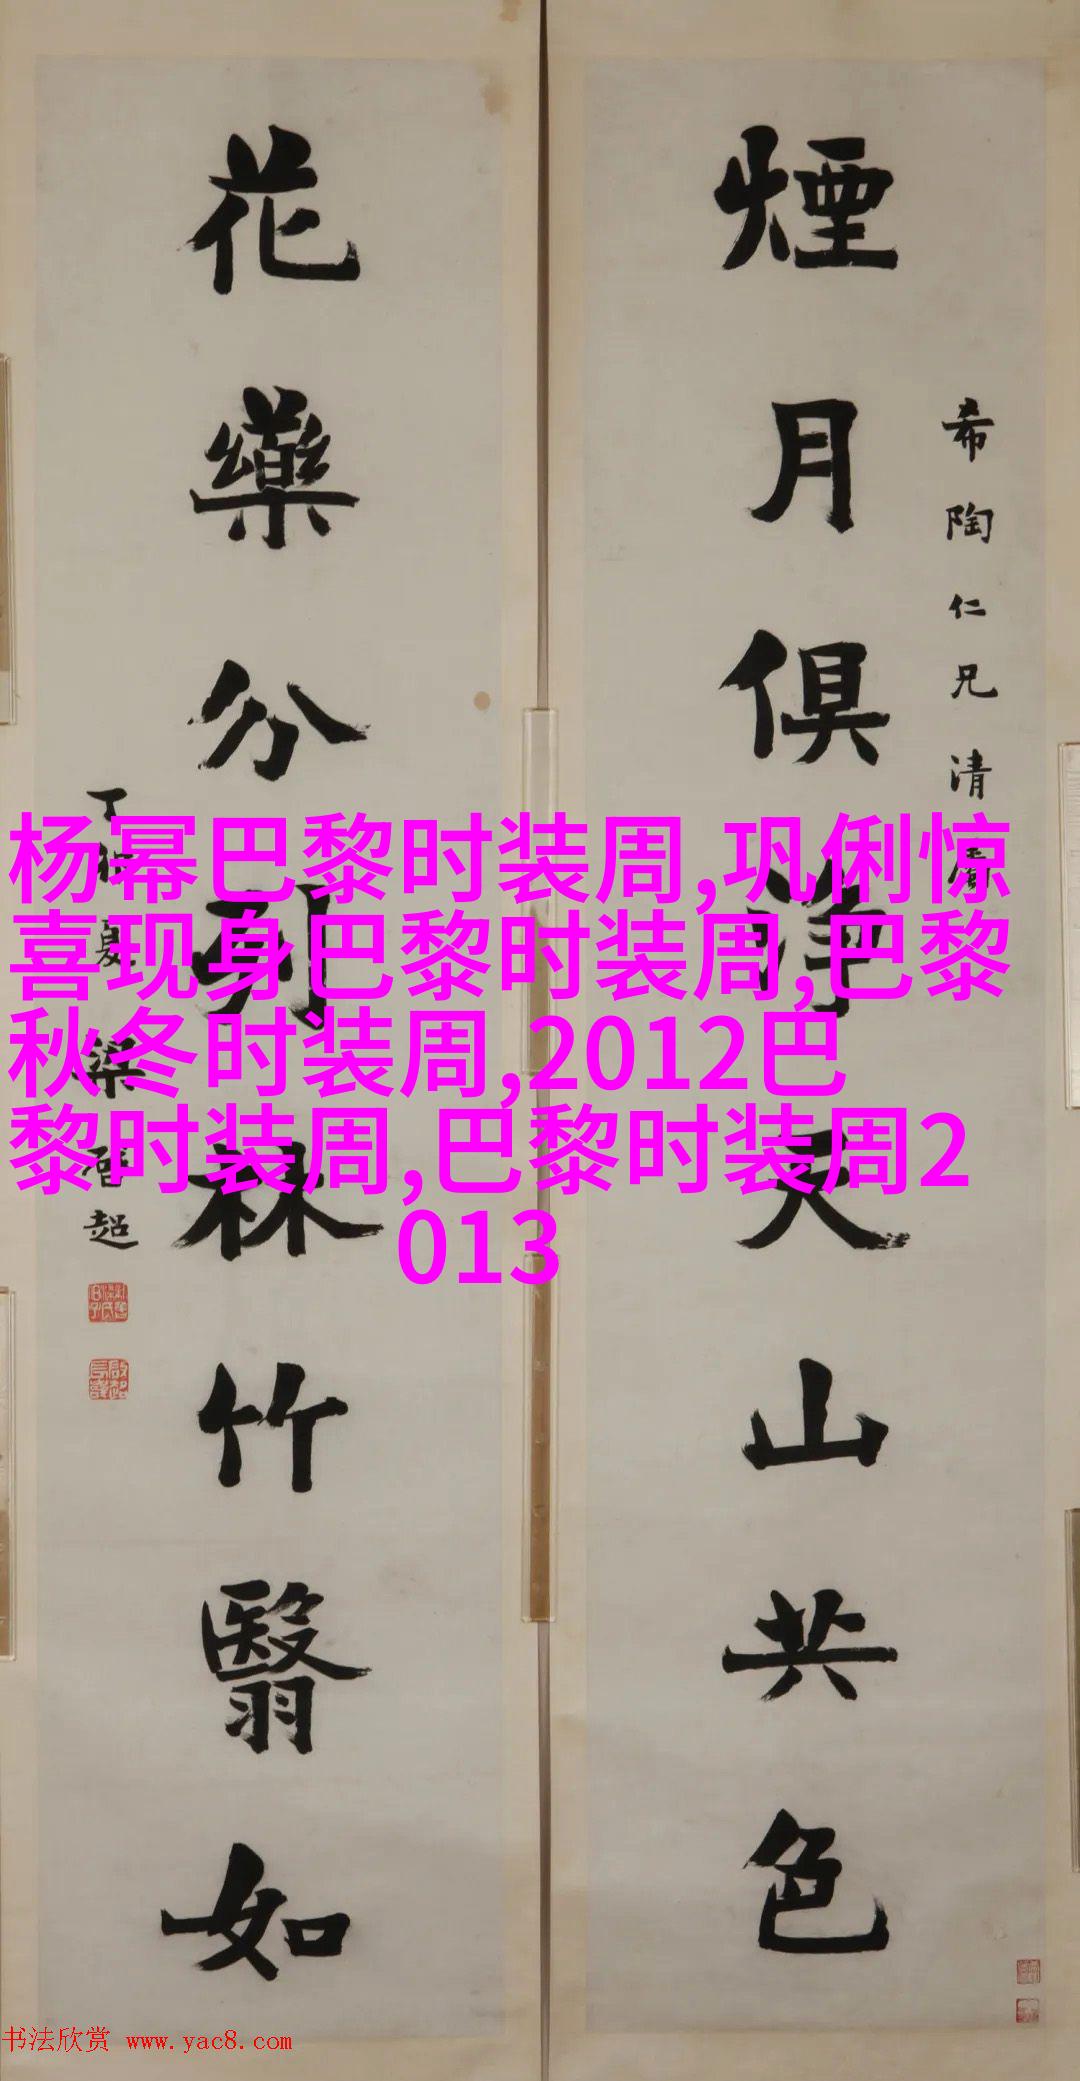 煙月俱淨天山共色
希陶仁兄清屬
花藥分列林竹翳如
夏梁啓超
杨幂巴黎时装周,巩俐惊
喜现身巴黎时装周,巴黎
秋冬时装周,2012巴
黎时装周,巴黎时装周2
013
书法欣赏 www.yac8.com